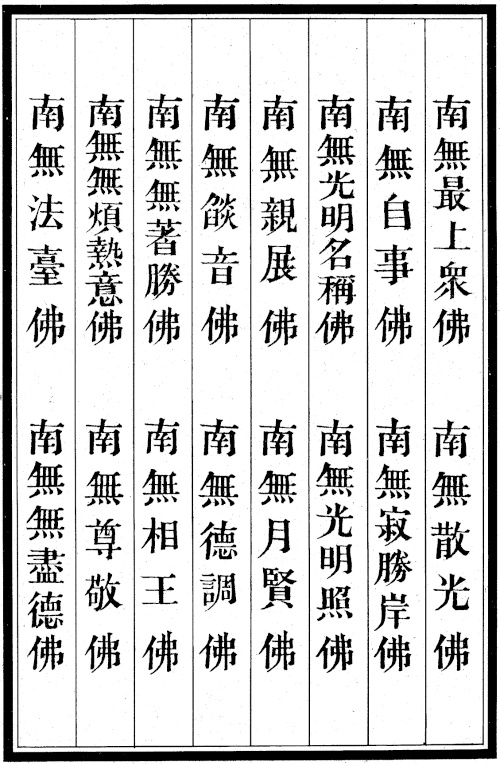 南無最上衆佛　南無散光佛
南無自事佛　南無寂勝岸佛
南無光明名稱佛　南無光明照佛
南無親展佛　南無月賢佛
南無燄音佛　南無德調佛
南無無著勝佛　南無相王佛
南無無煩熱意佛　南無尊敬佛
南無法臺佛　南無無盡德佛